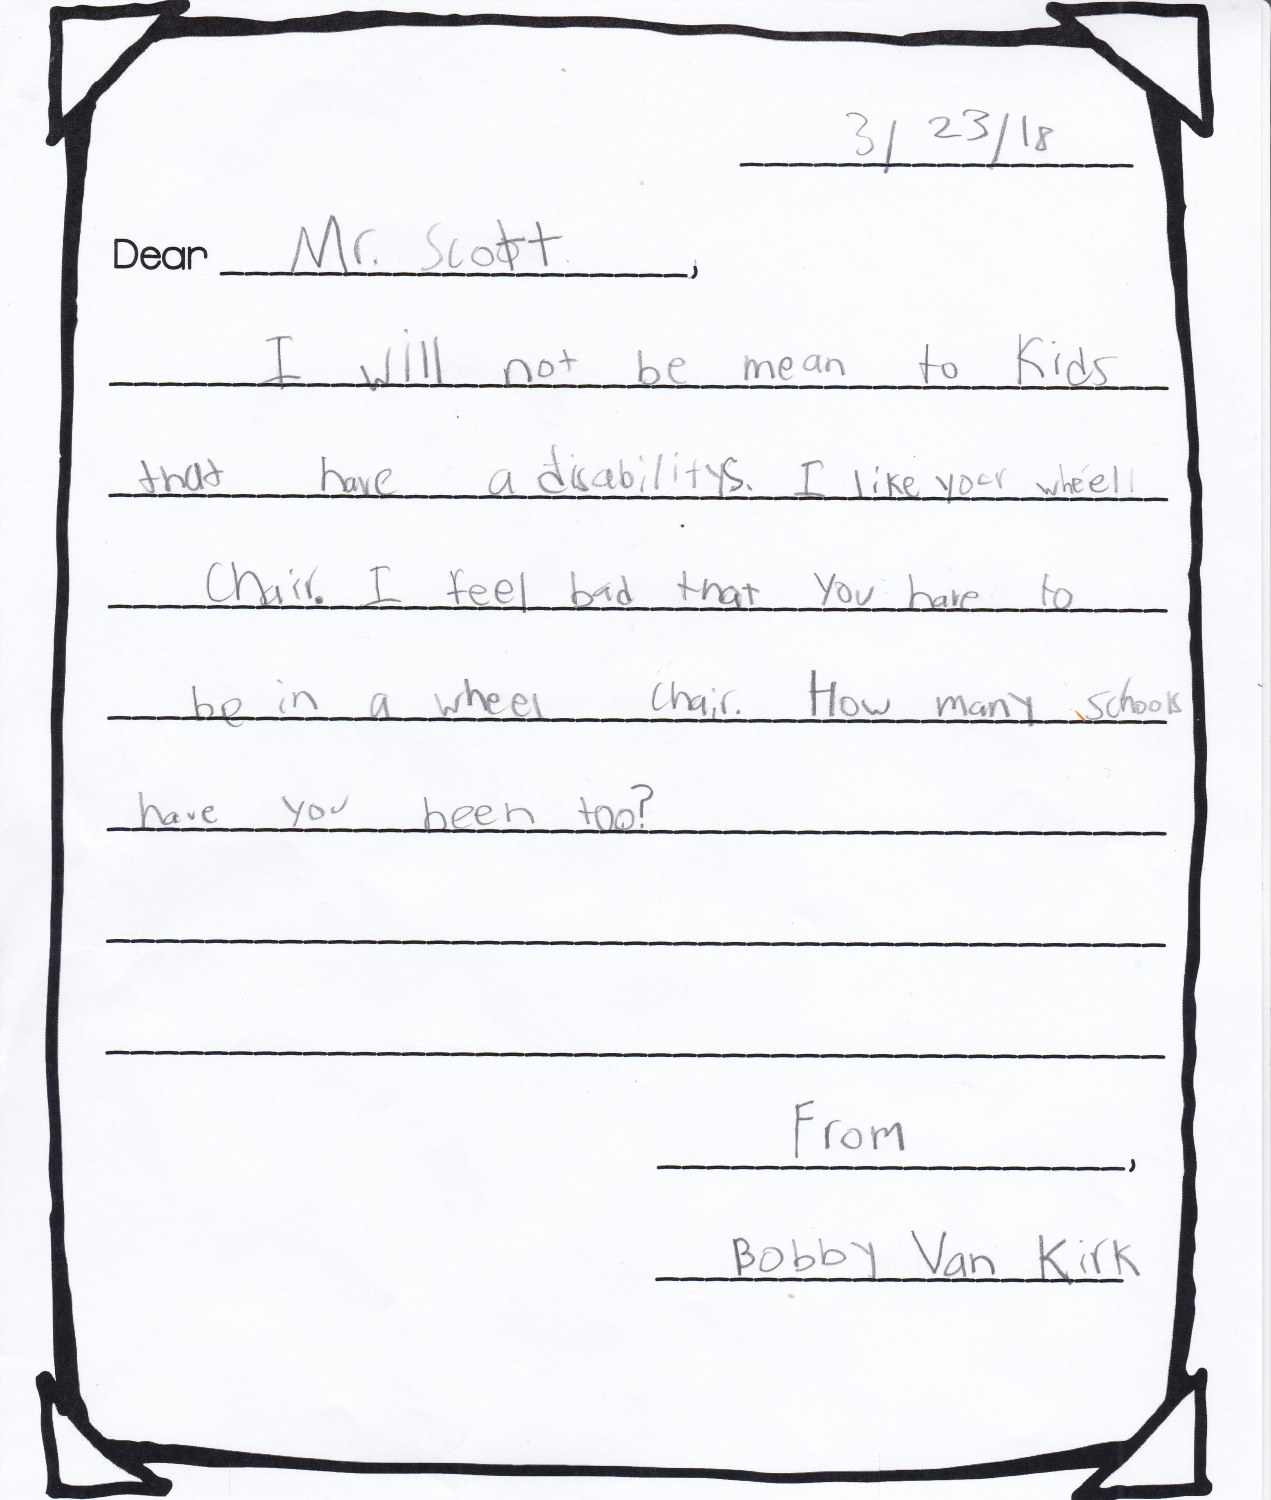 3/23/18
Dear Mr. Scott,
I will not be mean to Kids
that have a disabilitys. I like your wheell
Chair. I feel bad that you have to
be in a wheel chair. How many schools
have you been too?
From,
Bobby Van Kirk